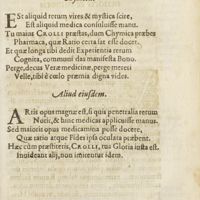 EST aliquid rerum vires & mystica scire,
Est aliquid medica consuluisse manu.
Tu maius CROLLI præstas, dum Chymica præbes
Pharmaca, quæ Ratio certa iat esse docet.
Et quæ longa tibi dedit Experientia rerum
Cognita, communi das manifesta Bono.
Perge, decus Veræ medicinæ, perge mereri
Velle, tibi è cœlo præmia digna vides.
Aliud eiusdem.
ARtis opus magnæ est, si quis penetralia rerum
Novit, & hinc medicas applicuisse manus.
Sed maioris opus medicamina posse docere,
Quæ ratio atque Fides ipsa oculata probent.
Hæc cùm præsteris, CROLLI, tua Gloria iusta est.
Invideant alij, non imitentur idem.